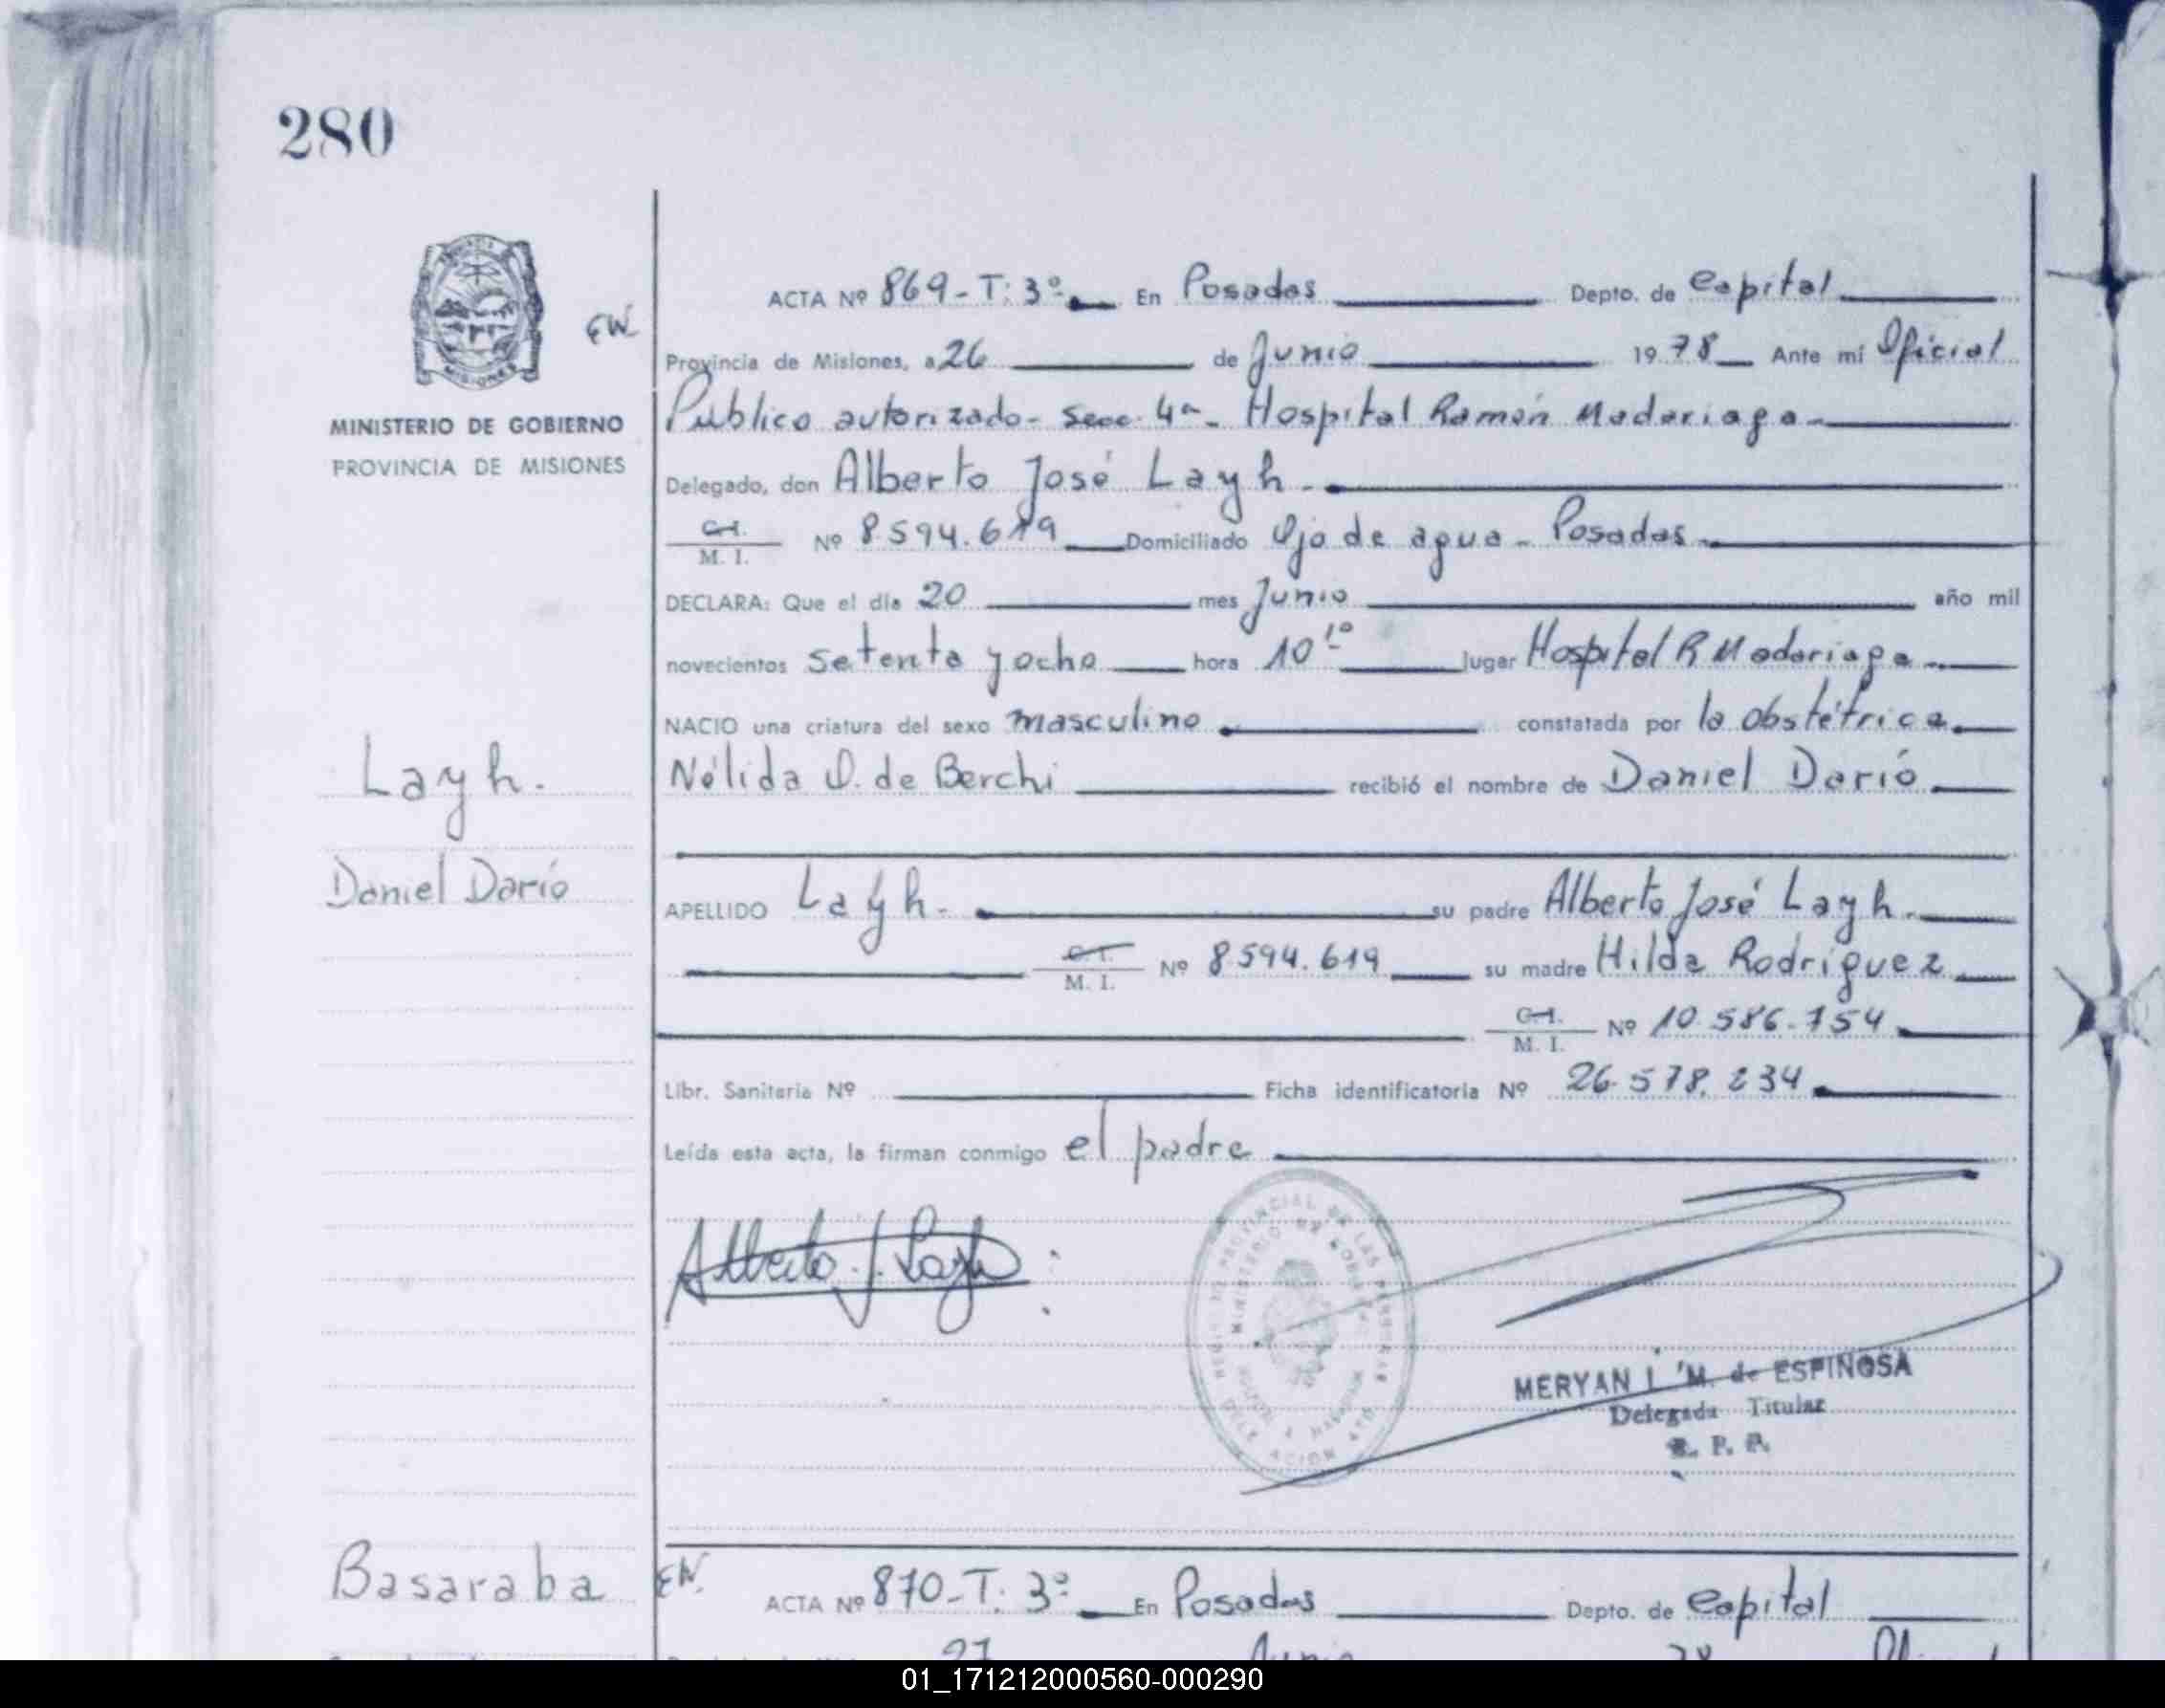 280
EW.
MINISTERIO DE GOBIERNO
PROVINCIA DE MISIONES
ACTA Nº 869-T: 3º En Posadas Depto. de Capital
Provincia de Misiones, a 26 de Junio 1978 Ante mí Oficial
Publico autorizado- Secc. 4ª- Hospital Ramón Madariaga-
Delegado, don Alberto José Layh.
C.I. M. I. Nº 8.594.619 Domiciliado Ojo de agua - Posadas
DECLARA: Que el día 20 mes Junio año mil
novecientos setenta y ocho hora 10 10 lugar Hospital R Madariaga
NACIO una criatura del sexo masculino constatada por la obstétrica
Layh.
Nélida O. de Berchi recibió el nombre de Daniel Darío
Daniel Darío
APELLIDO Layh. su padre Alberto José Layh.
C.I. M. I. Nº 8594.619 su madre Hilda Rodríguez
C.I. M. I. Nº 10.586.754
Libr. Sanitaria Nº Ficha identificatoria Nº 26.578.234
Leída esta acta, la firman conmigo el padre
Alberto J. Layh
MERYAN I. M. de ESPINOSA
Delegada Titular
R. P. P.
Basaraba
EW. ACTA Nº 870-T: 3º En Posadas Depto. de Capital
27 Junio 78
01_171212000560-000290